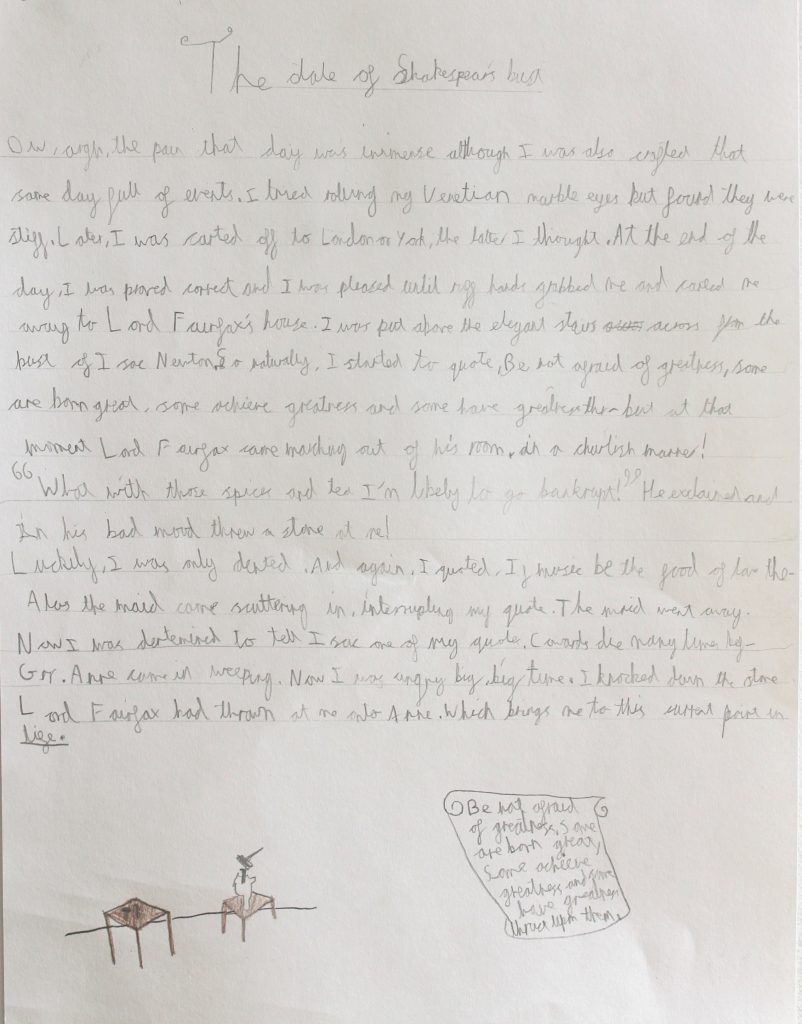 The dale of Shakespears bust
Ow, argh, the pain that day was immense although I was also crafted that
same day full of events. I tried rolling my Venetian marble eyes but found they were
stiff. Later, I was carted off to London or York, the latter I thought. At the end of the
day, I was proved correct and I was pleased until ruff hands grabbed me and carried me
away to Lord Fairfax's house. I was put above the elegant stairs across from the
bust of I sac Newton, So naturally, I started to quote, Be not afraid of greatness, some
are born great, some achieve greatness and some have greatness thr- but at that
moment Lord Fairfax came marching out of his room, in a churlish manner!
"What with those spices and tea I'm likely to go bankrupt!" He exclaimed and
In his bad mood threw a stone at me!
Luckily, I was only dented. And again, I quoted, If music be the food of love the-
Alas the maid came scuttering in, interrupting my quote. The maid went away.
Now I was determined to tell I sac one of my quote. Cowards die many times
Grr. Anne came in weeping. Now I was angry big, big time. I knocked down the stone
Lord Fairfax had thrown at me onto Anne. Which brings me to this current point in
life.
Be not afraid
of greatness, Some
are born great,
Some achieve
greatness and some
have greatness
thrust upon them.